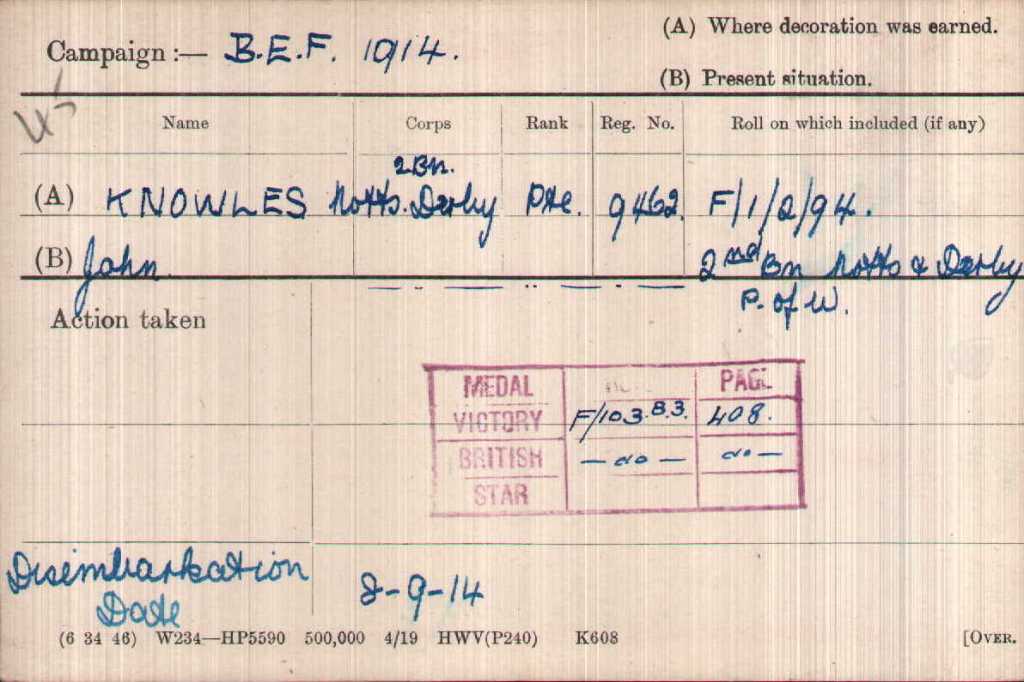 Campaign :— B.E.F. 1914.
(A) Where decoration was earned.
(B) Present situation.
Name Corps Rank Reg. No. Roll on which included (if any)
2Bn.
(A) KNOWLES Notts. Derby Pte. 9462 F/1/2/94.
(B) John 2nd Bn Notts & Derby
P. of W.
Action taken
MEDAL PAGE
VICTORY F/103.B.3. 408.
BRITISH — do — do —
STAR
Disembarkation
Date 8-9-14
(6 34 46) W234—HP5590 500,000 4/19 HWV(P240) K608 [OVER.